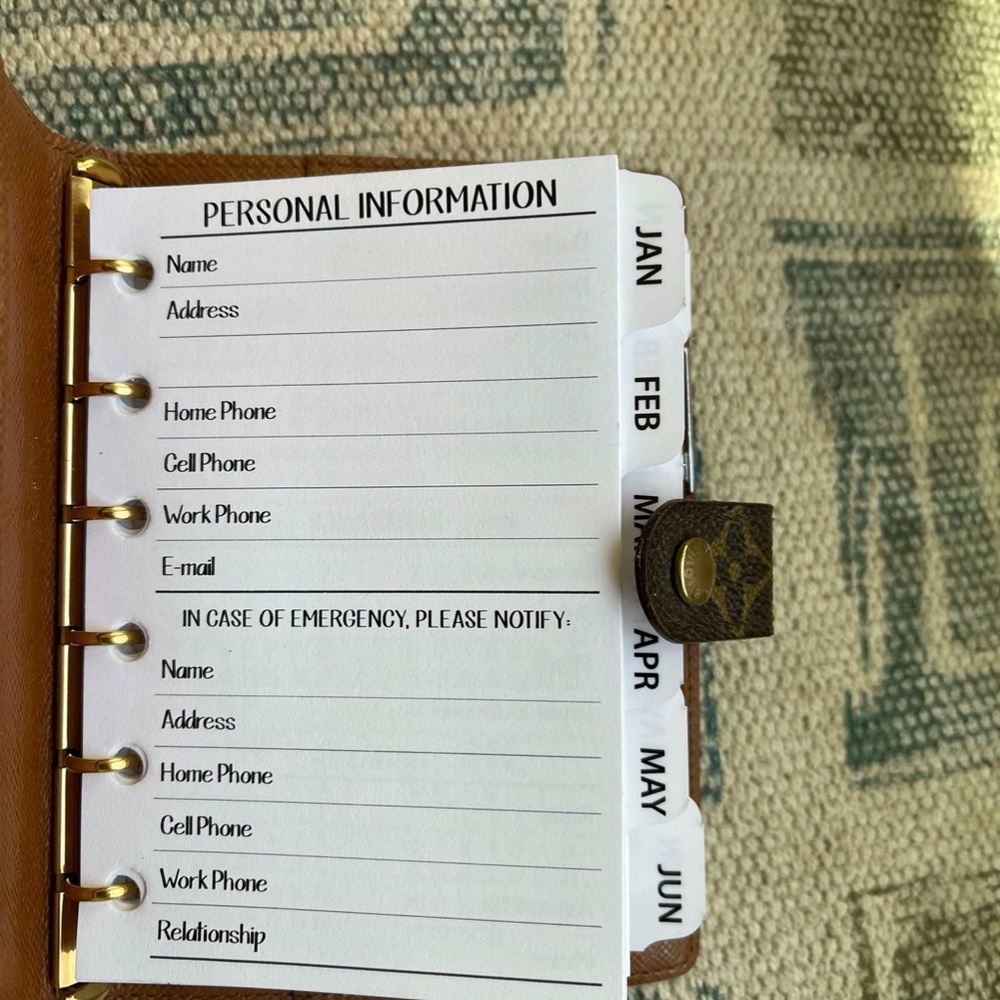 PERSONAL INFORMATION
Name
Address
Home Phone
Cell Phone
Work Phone
E-mail
IN CASE OF EMERGENCY, PLEASE NOTIFY:
Name
Address
Home Phone
Cell Phone
Work Phone
Relationship
JAN
FEB
MA
APR
MAY
JUN